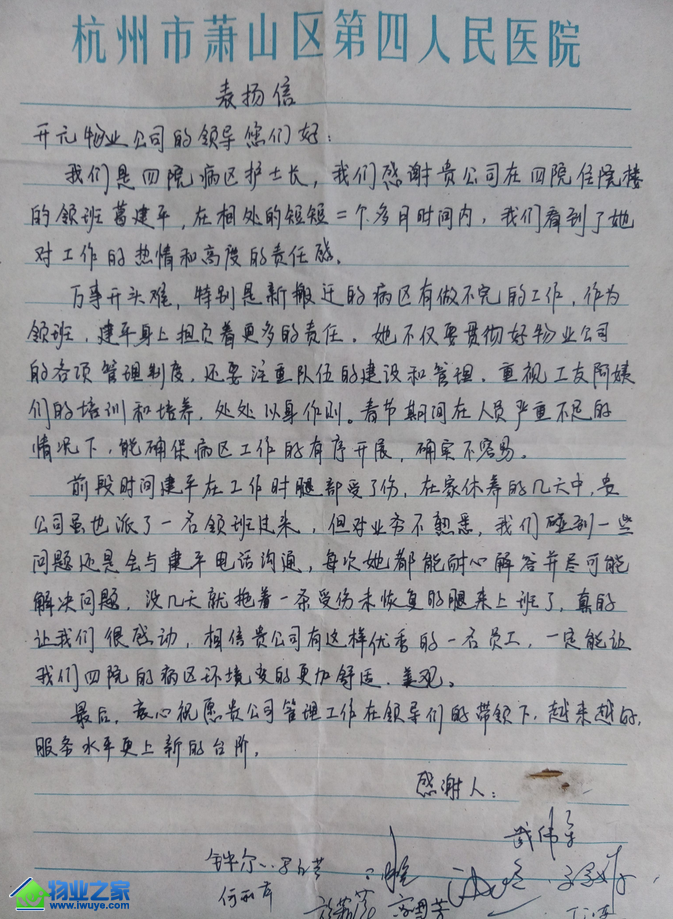 杭州市萧山区第四人民医院
表扬信
开元物业公司的领导您们好:
我们是四院病区护士长,我们感谢贵公司在四院住院楼
的领班葛建平,在相处的短短二个多月时间内,我们看到了她
对工作的热情和高度的责任感。
万事开头难,特别是新搬迁的病区有做不完的工作,作为
领班,建平身上担负着更多的责任。她不仅要贯彻好物业公司
的各项管理制度,还要注重队伍的建设和管理,重视工友阿姨
们的培训和培养,处处以身作则。春节期间在人员严重不足的
情况下,能确保病区工作的有序开展,确实不容易。
前段时间建平在工作时腿部受了伤,在家休养的几天中,贵
公司虽也派了一名领班过来,但对业务不熟悉,我们碰到一些
问题还是会与建平电话沟通,每次她都能耐心解答并尽可能
解决问题,没几天就拖着一条受伤未恢复的腿来上班了,真的
让我们很感动,相信贵公司有这样优秀的一名员工,一定能让
我们四院的病区环境变的更加舒适、美观。
最后,衷心祝愿贵公司管理工作在领导们的带领下,越来越好,
服务水平更上新的台阶。
感谢人:
物业之家
www.iwuye.com